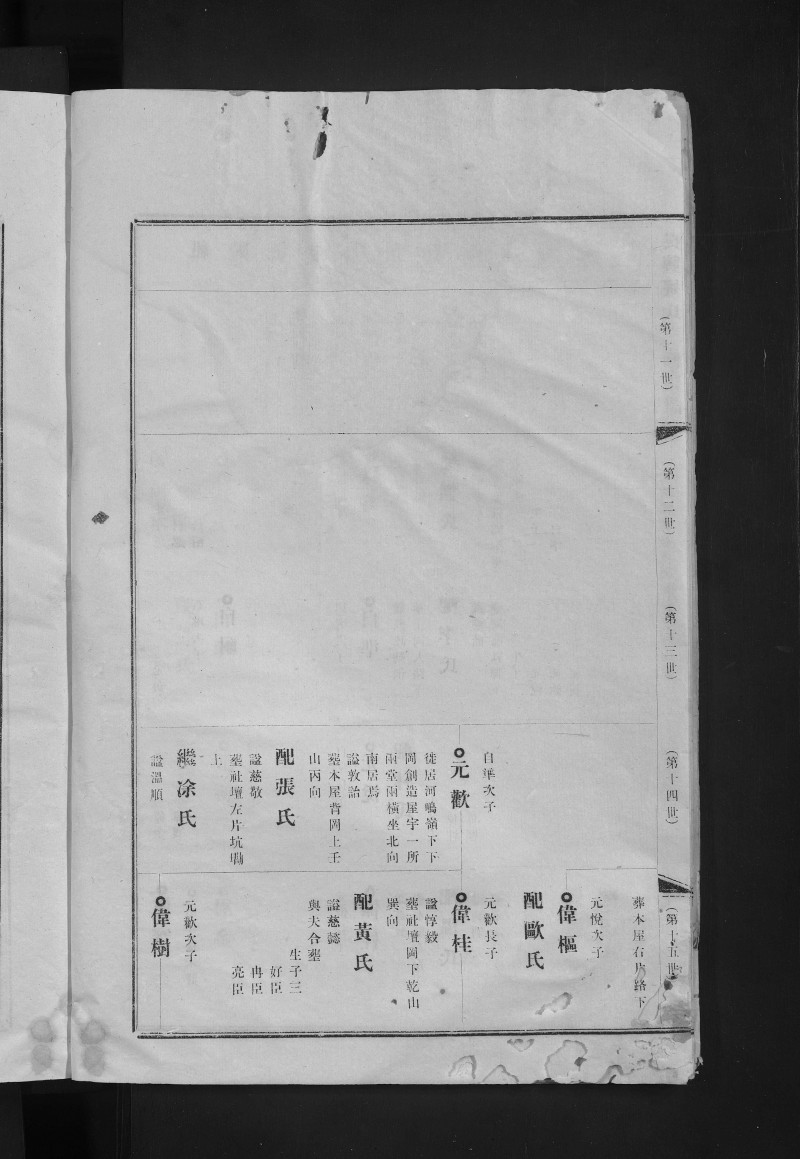 (第十一世)
(第十二世)
(第十三世)
(第十四世)
(第十五世)
自華次子
元歡
徙居河鳴嶺下下
岡創造屋宇一所
兩堂兩橫坐北向
南居焉
諡敦詒
塟本屋背岡上壬
山丙向
配張氏
諡慈敬
塟社壇左片坑塝
上
繼涂氏
諡溫順
葬本屋右片路下
元悅次子
偉樞
配歐氏
元歡長子
偉桂
諡惇毅
塟社壇岡下乾山
巽向
配黃氏
諡慈懿
與夫合塟
生子三
好臣
冉臣
亮臣
元歡次子
偉樹